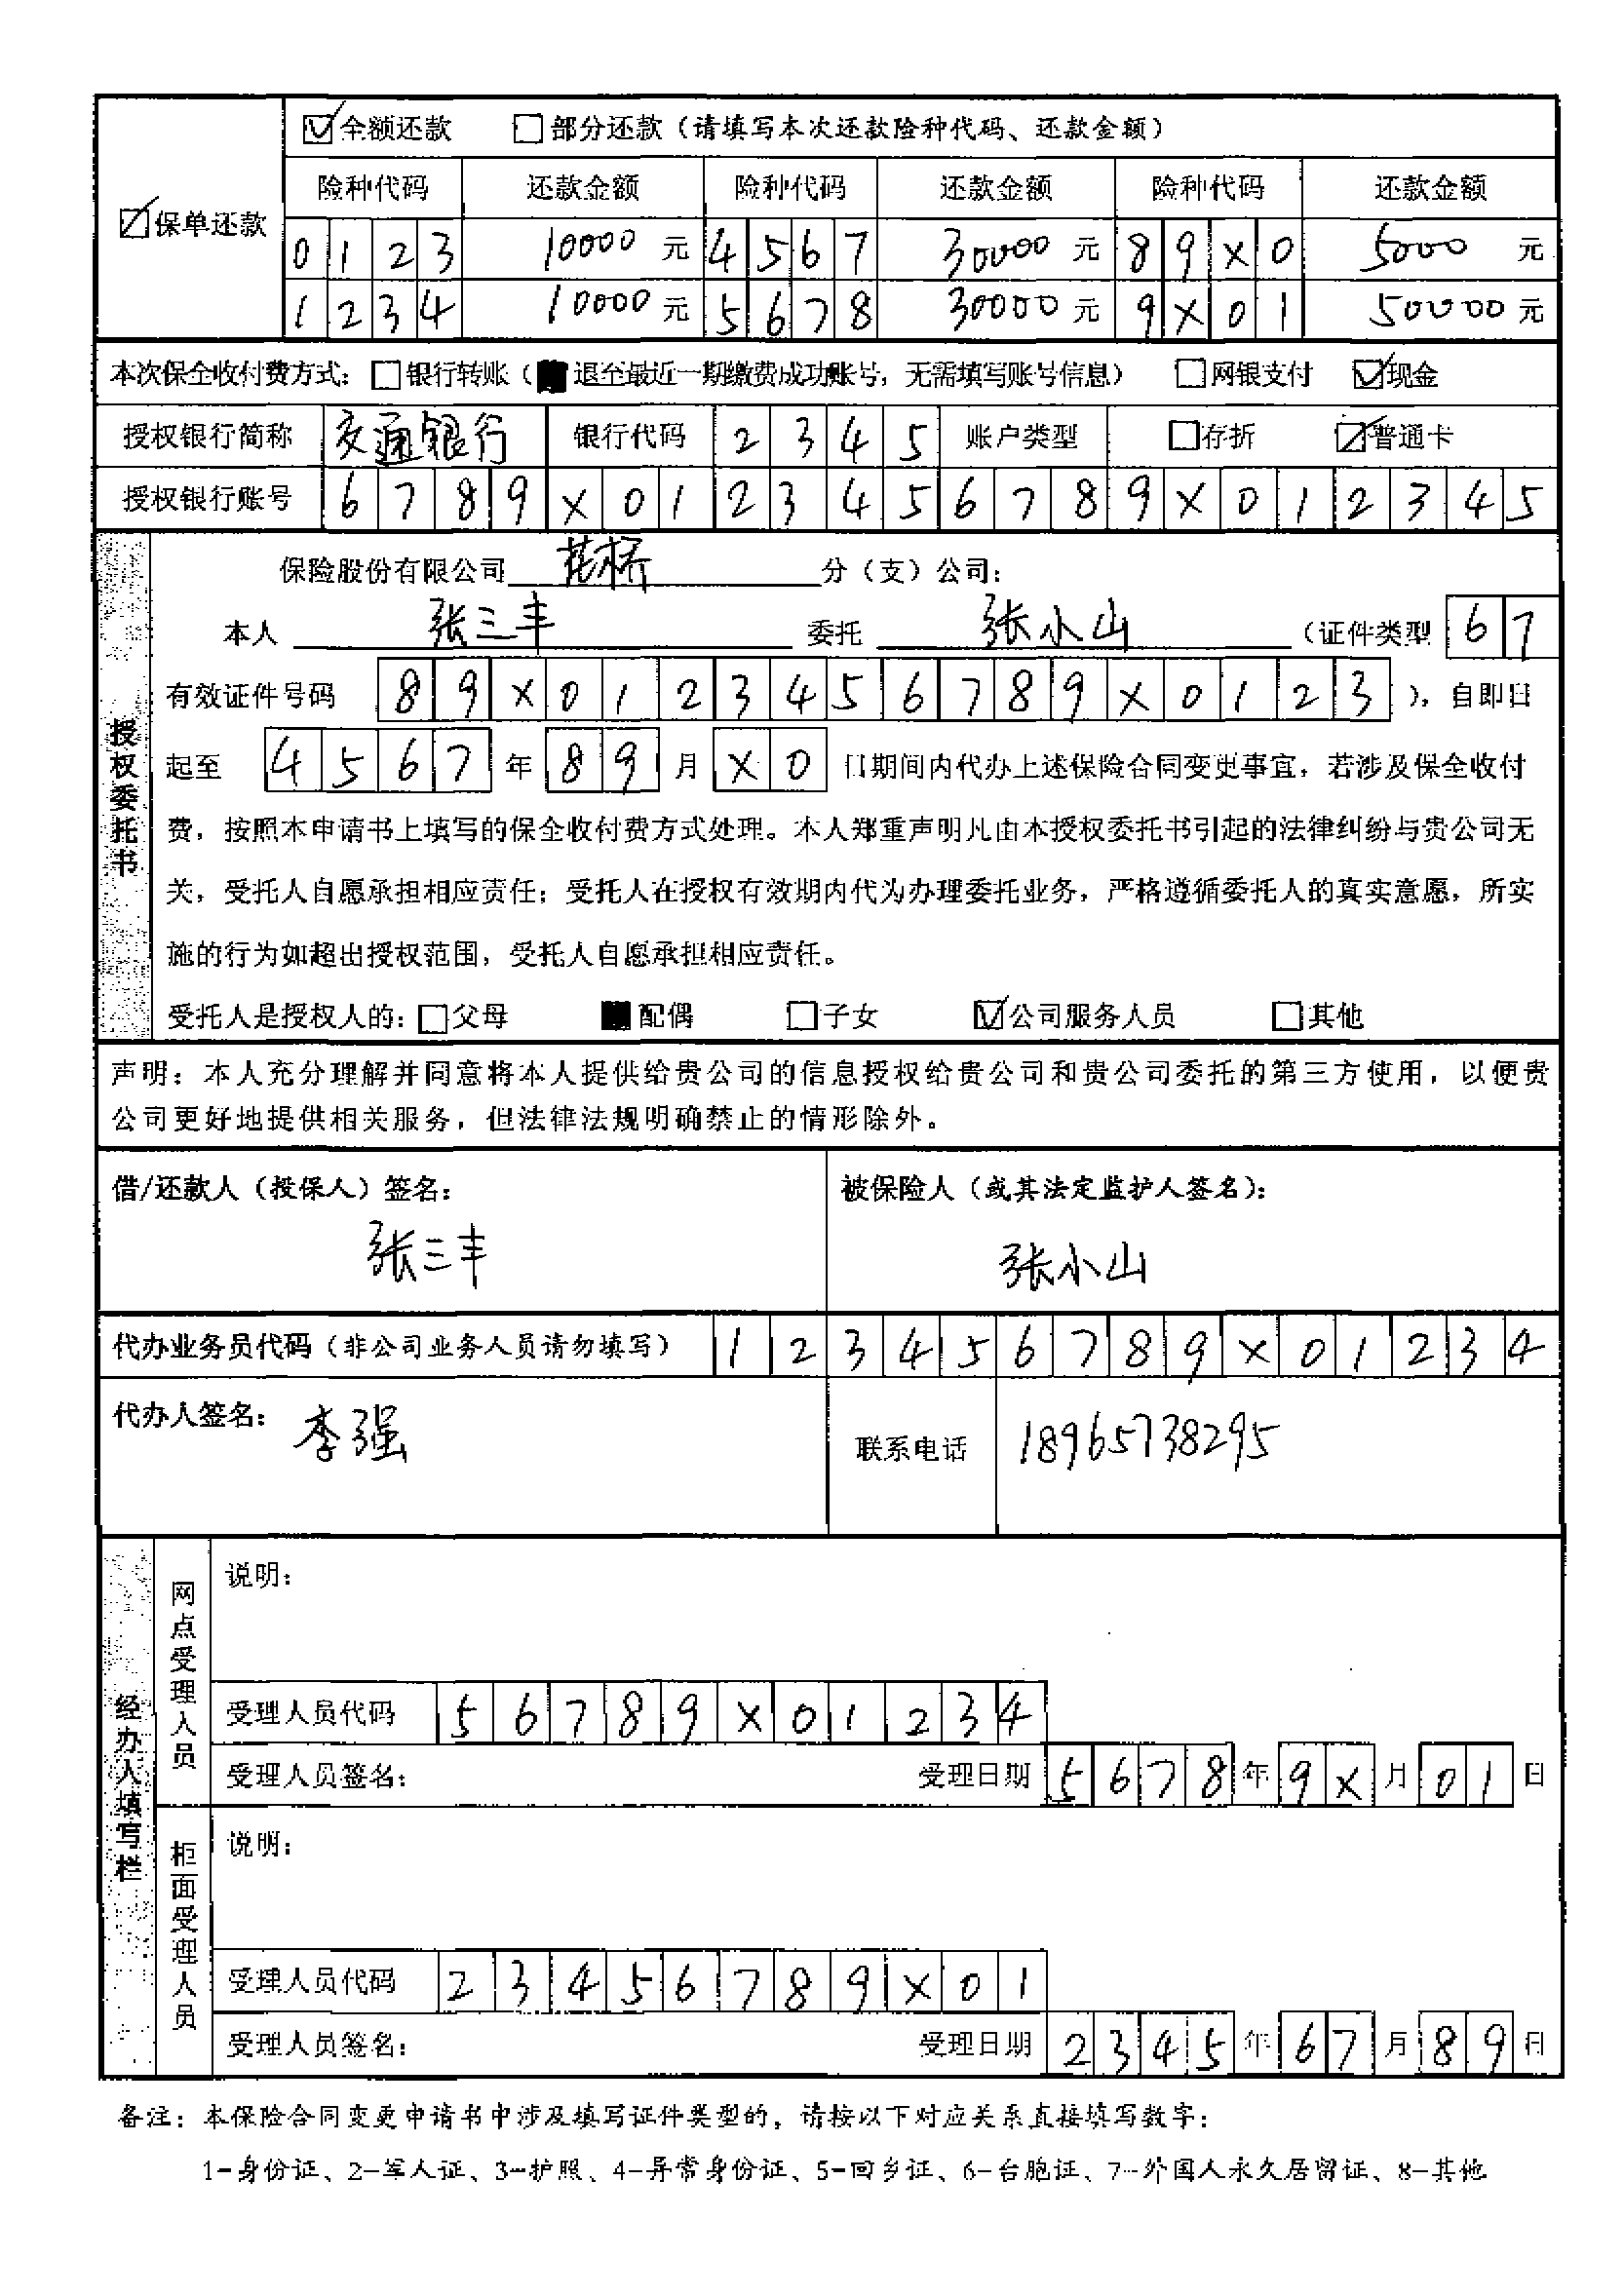 ☑全额还款 □部分还款（请填写本次还款险种代码、还款金额）
☑保单还款
险种代码 还款金额 险种代码 还款金额 险种代码 还款金额
0123 10000 元 4567 30000 元 89X0 5000 元
1234 10000 元 5678 30000 元 9X01 50000 元
本次保全收付费方式：□银行转账（■退至最近一期缴费成功账号，无需填写账号信息） □网银支付 ☑现金
授权银行简称 交通银行 银行代码 2345 账户类型 □存折 ☑普通卡
授权银行账号 6789X0123456789X012345
授权委托书
保险股份有限公司 花桥 分（支）公司：
本人 张三丰 委托 张小山 （证件类型 67
有效证件号码 89X0123456789X0123 ），自即日
起至 4567 年 89 月 X0 日期间内代办上述保险合同变更事宜，若涉及保全收付
费，按照本申请书上填写的保全收付费方式处理。本人郑重声明凡由本授权委托书引起的法律纠纷与贵公司无
关，受托人自愿承担相应责任；受托人在授权有效期内代为办理委托业务，严格遵循委托人的真实意愿，所实
施的行为如超出授权范围，受托人自愿承担相应责任。
受托人是授权人的：□父母 ■配偶 □子女 ☑公司服务人员 □其他
声明：本人充分理解并同意将本人提供给贵公司的信息授权给贵公司和贵公司委托的第三方使用，以便贵
公司更好地提供相关服务，但法律法规明确禁止的情形除外。
借/还款人（投保人）签名： 被保险人（或其法定监护人签名）：
张三丰 张小山
代办业务员代码（非公司业务人员请勿填写） 123456789X01234
代办人签名：李强 联系电话 18965738295
经办人填写栏
网点受理人员
说明：
受理人员代码 56789X01234
受理人员签名： 受理日期 5678 年 9X 月 01 日
柜面受理人员
说明：
受理人员代码 23456789X01
受理人员签名： 受理日期 2345 年 67 月 89 日
备注：本保险合同变更申请书中涉及填写证件类型的，请按以下对应关系直接填写数字：
1-身份证、2-军人证、3-护照、4-异常身份证、5-回乡证、6-台胞证、7-外国人永久居留证、8-其他